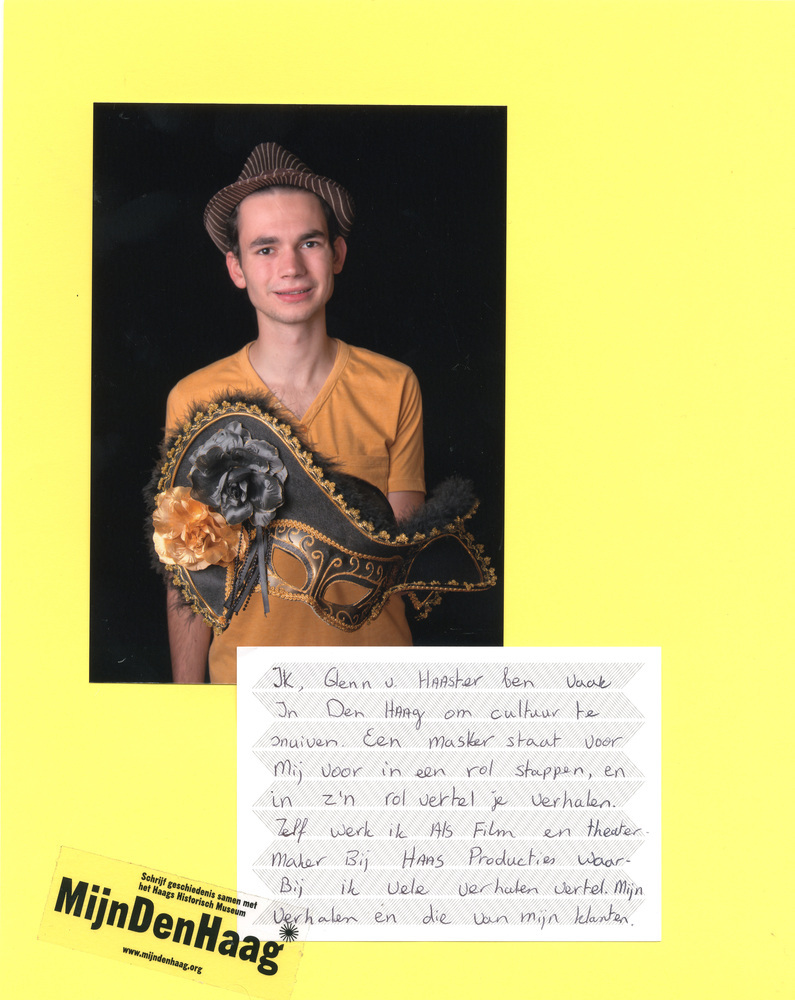 IK, Glenn v. HAASter ben vaak
In Den HAAg om cultuur te
snuiven. Een masker staat voor
Mij voor in een rol stappen, en
in z'n rol vertel je verhalen.
Zelf werk ik Als Film en theater-
maker Bij HAAS Producties waar-
Bij ik vele verhalen vertel. Mijn
verhalen en die van mijn klanten.
Schrijf geschiedenis samen met
het Haags Historisch Museum
MijnDenHaag
www.mijndenhaag.org